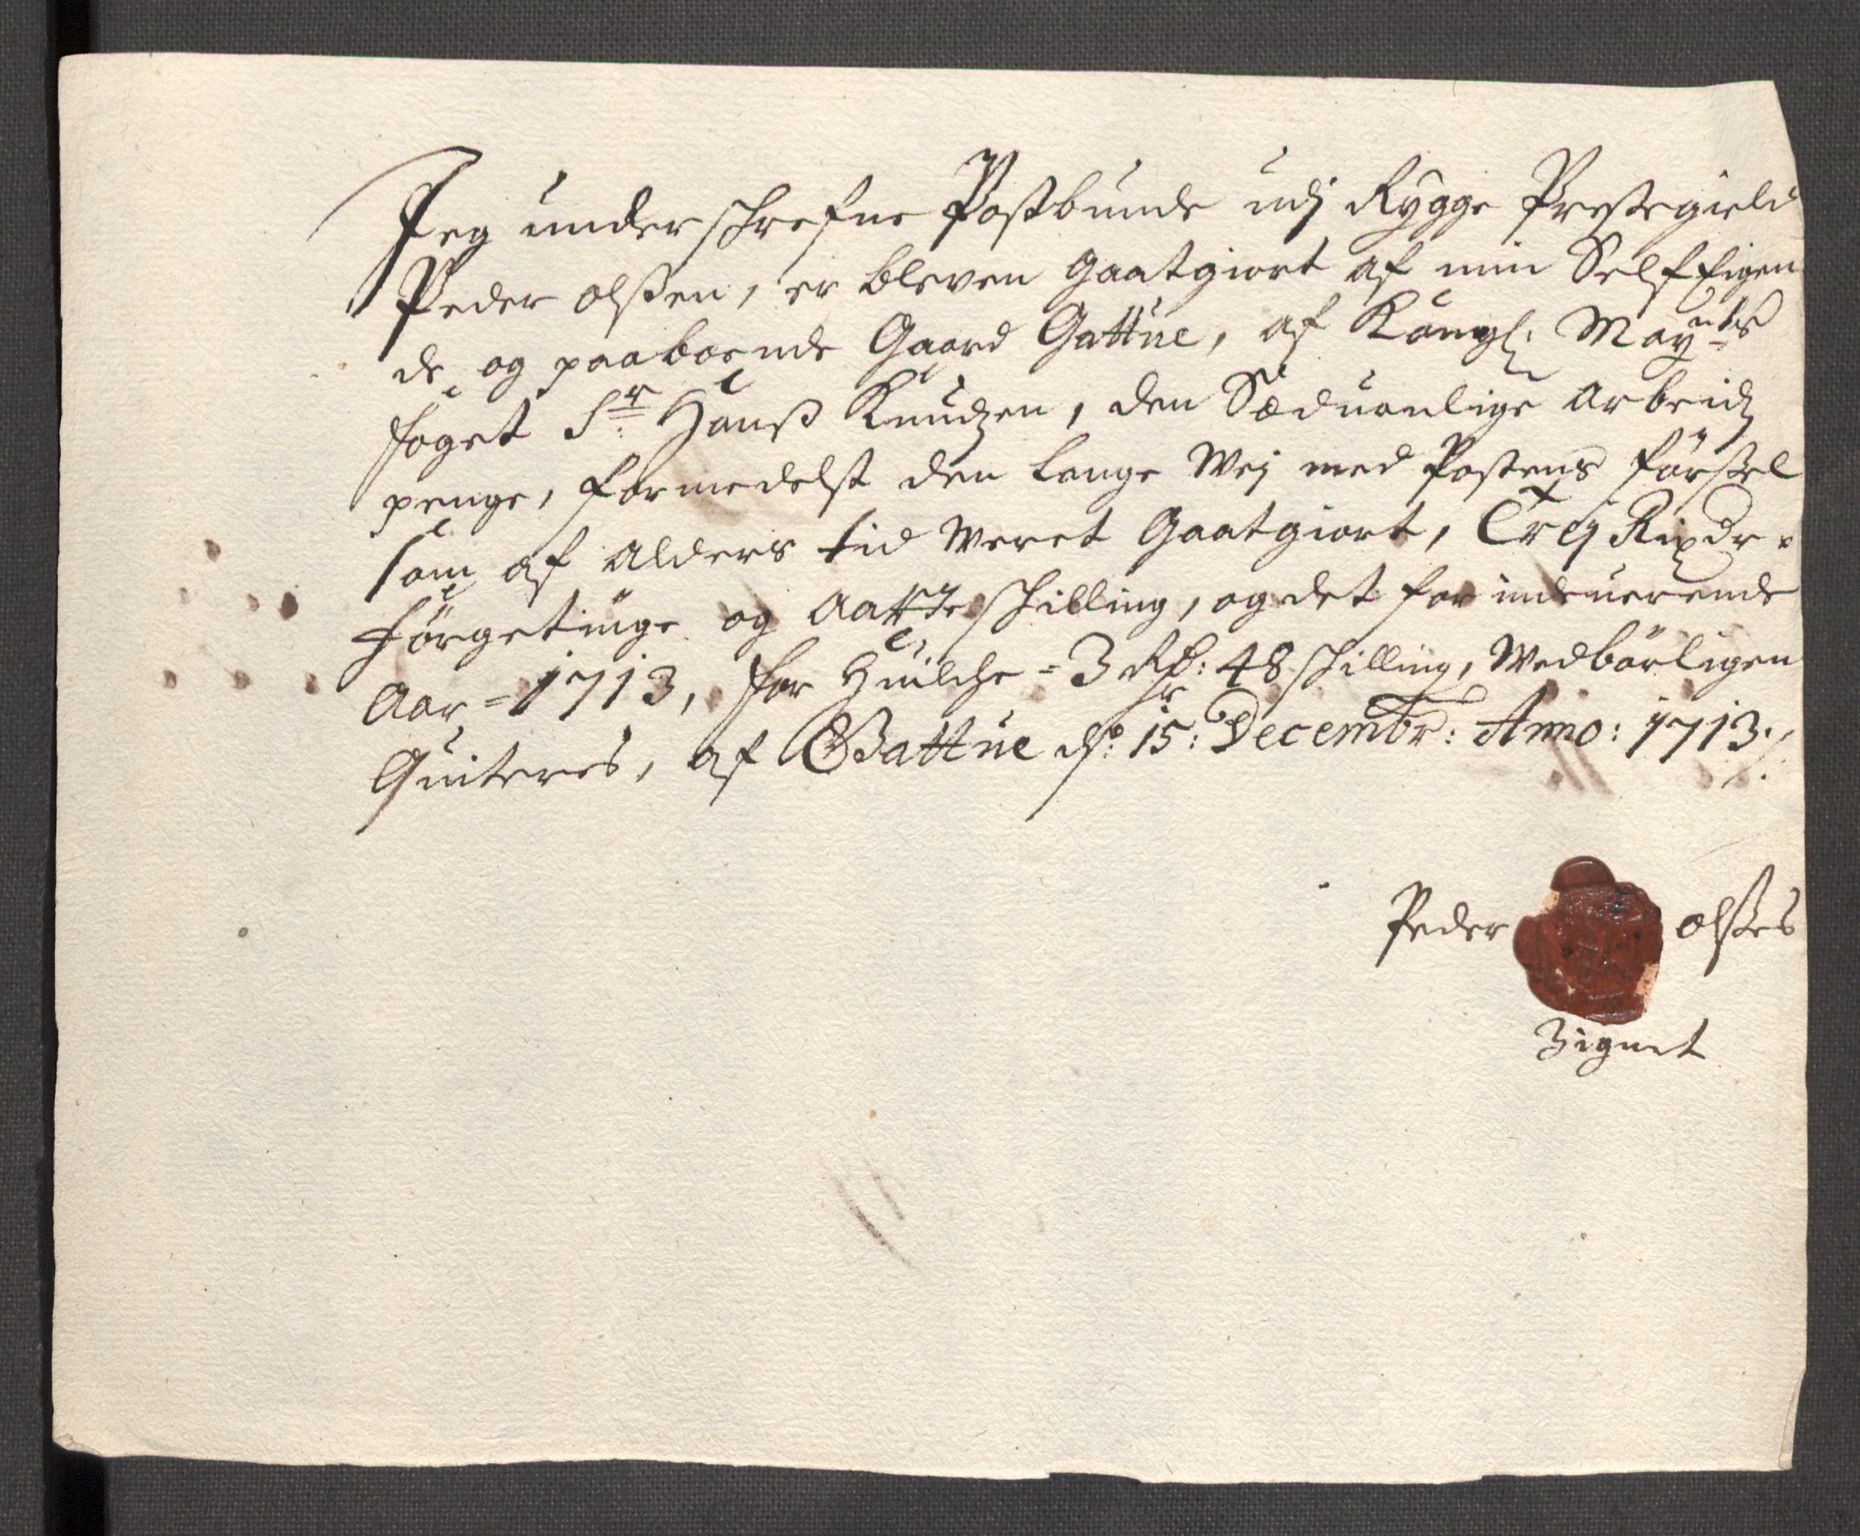 Jeg underschrefne Postbunde udj Rygge Prestegield
Peder olßen, er bleven gaatgiort af min Self Eigen
de og paaboende Gaard Gattue, af Kongl: Mayts
foget Sr: Hanß Knudzen, den Sæduonlige arbeidz
penge, formedelst den lange Wej med Postensførsel
som af Alders tid Weret gaatgiort, Trej Rixdr.
førgetiuge og Aatte schilling, og det for indeuerende
Aar = 1713, for huilche = 3 Rdr: 48 schilling, Wedbørligen
Quiteres, af Gattue ds: 15: Decembr: Anno: 1713:/.
Peder olßes
Zignet